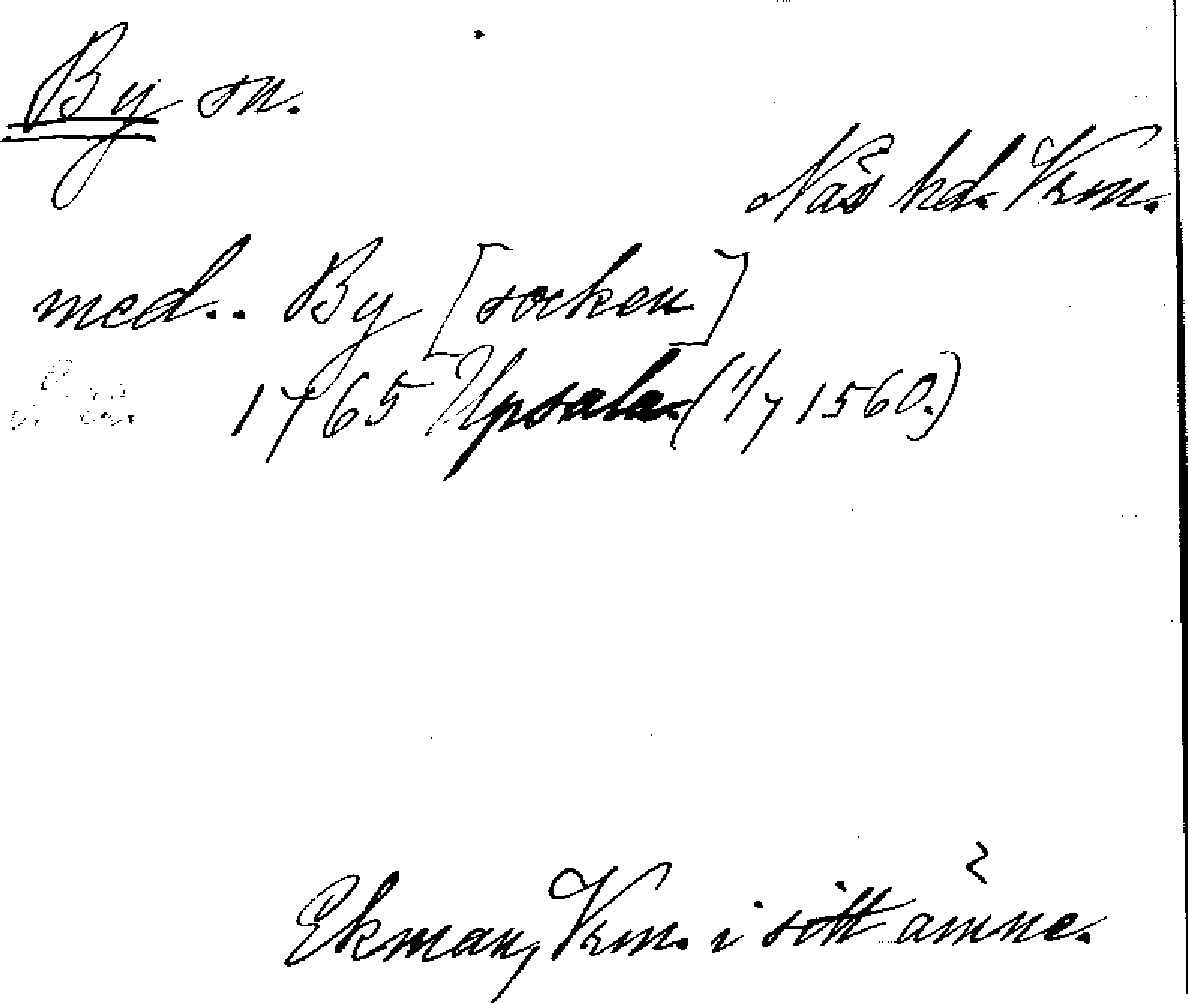 By sn.
Näs hd. Vrm.
med.. By [socken]
1765 Upsala (1/7 1560.)
Ekman, Vrm. i sitt ämne.